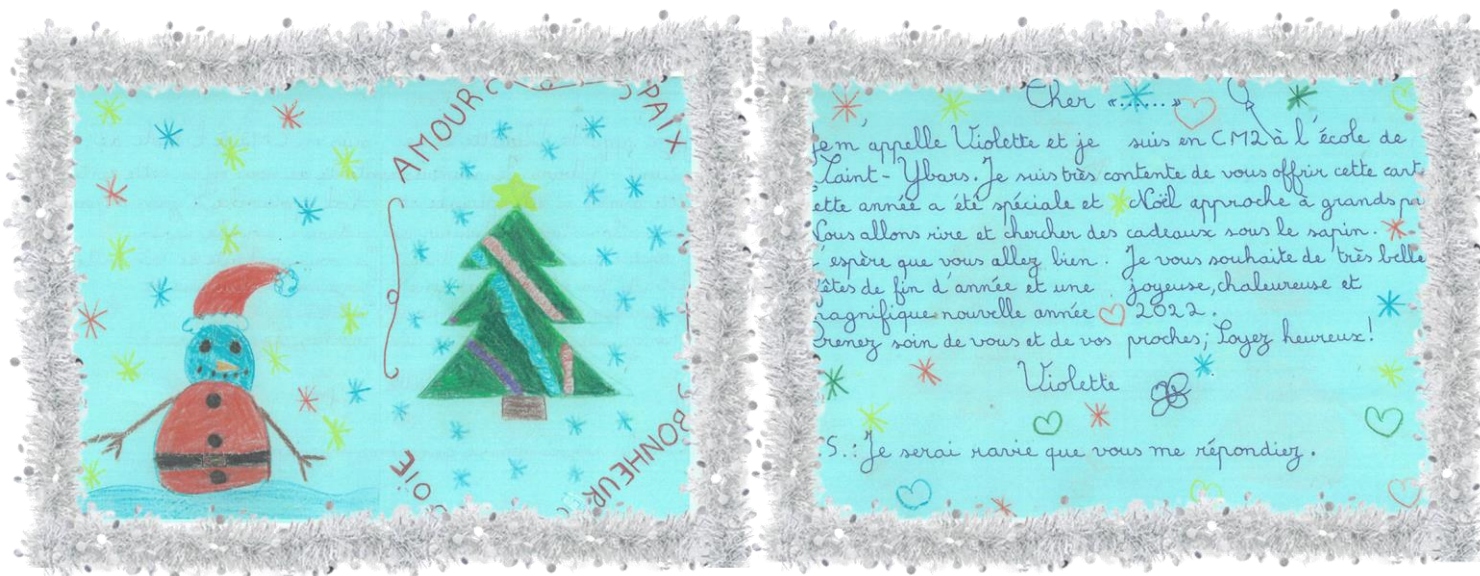 AMOUR
PAIX
BONHEUR
OIE
Cher «......»
Je m'appelle Violette et je suis en CM2 à l'école de
Saint-Ybars. Je suis très contente de vous offrir cette cart
ette année a été spéciale et Noël approche à grands pa
ous allons rire et chercher des cadeaux sous le sapin.
'espère que vous allez bien. Je vous souhaite de très belle
êtes de fin d'année et une joyeuse, chaleureuse et
magnifique nouvelle année 2022.
Prenez soin de vous et de vos proches; Soyez heureux!
Violette
S.: Je serai ravie que vous me répondiez.